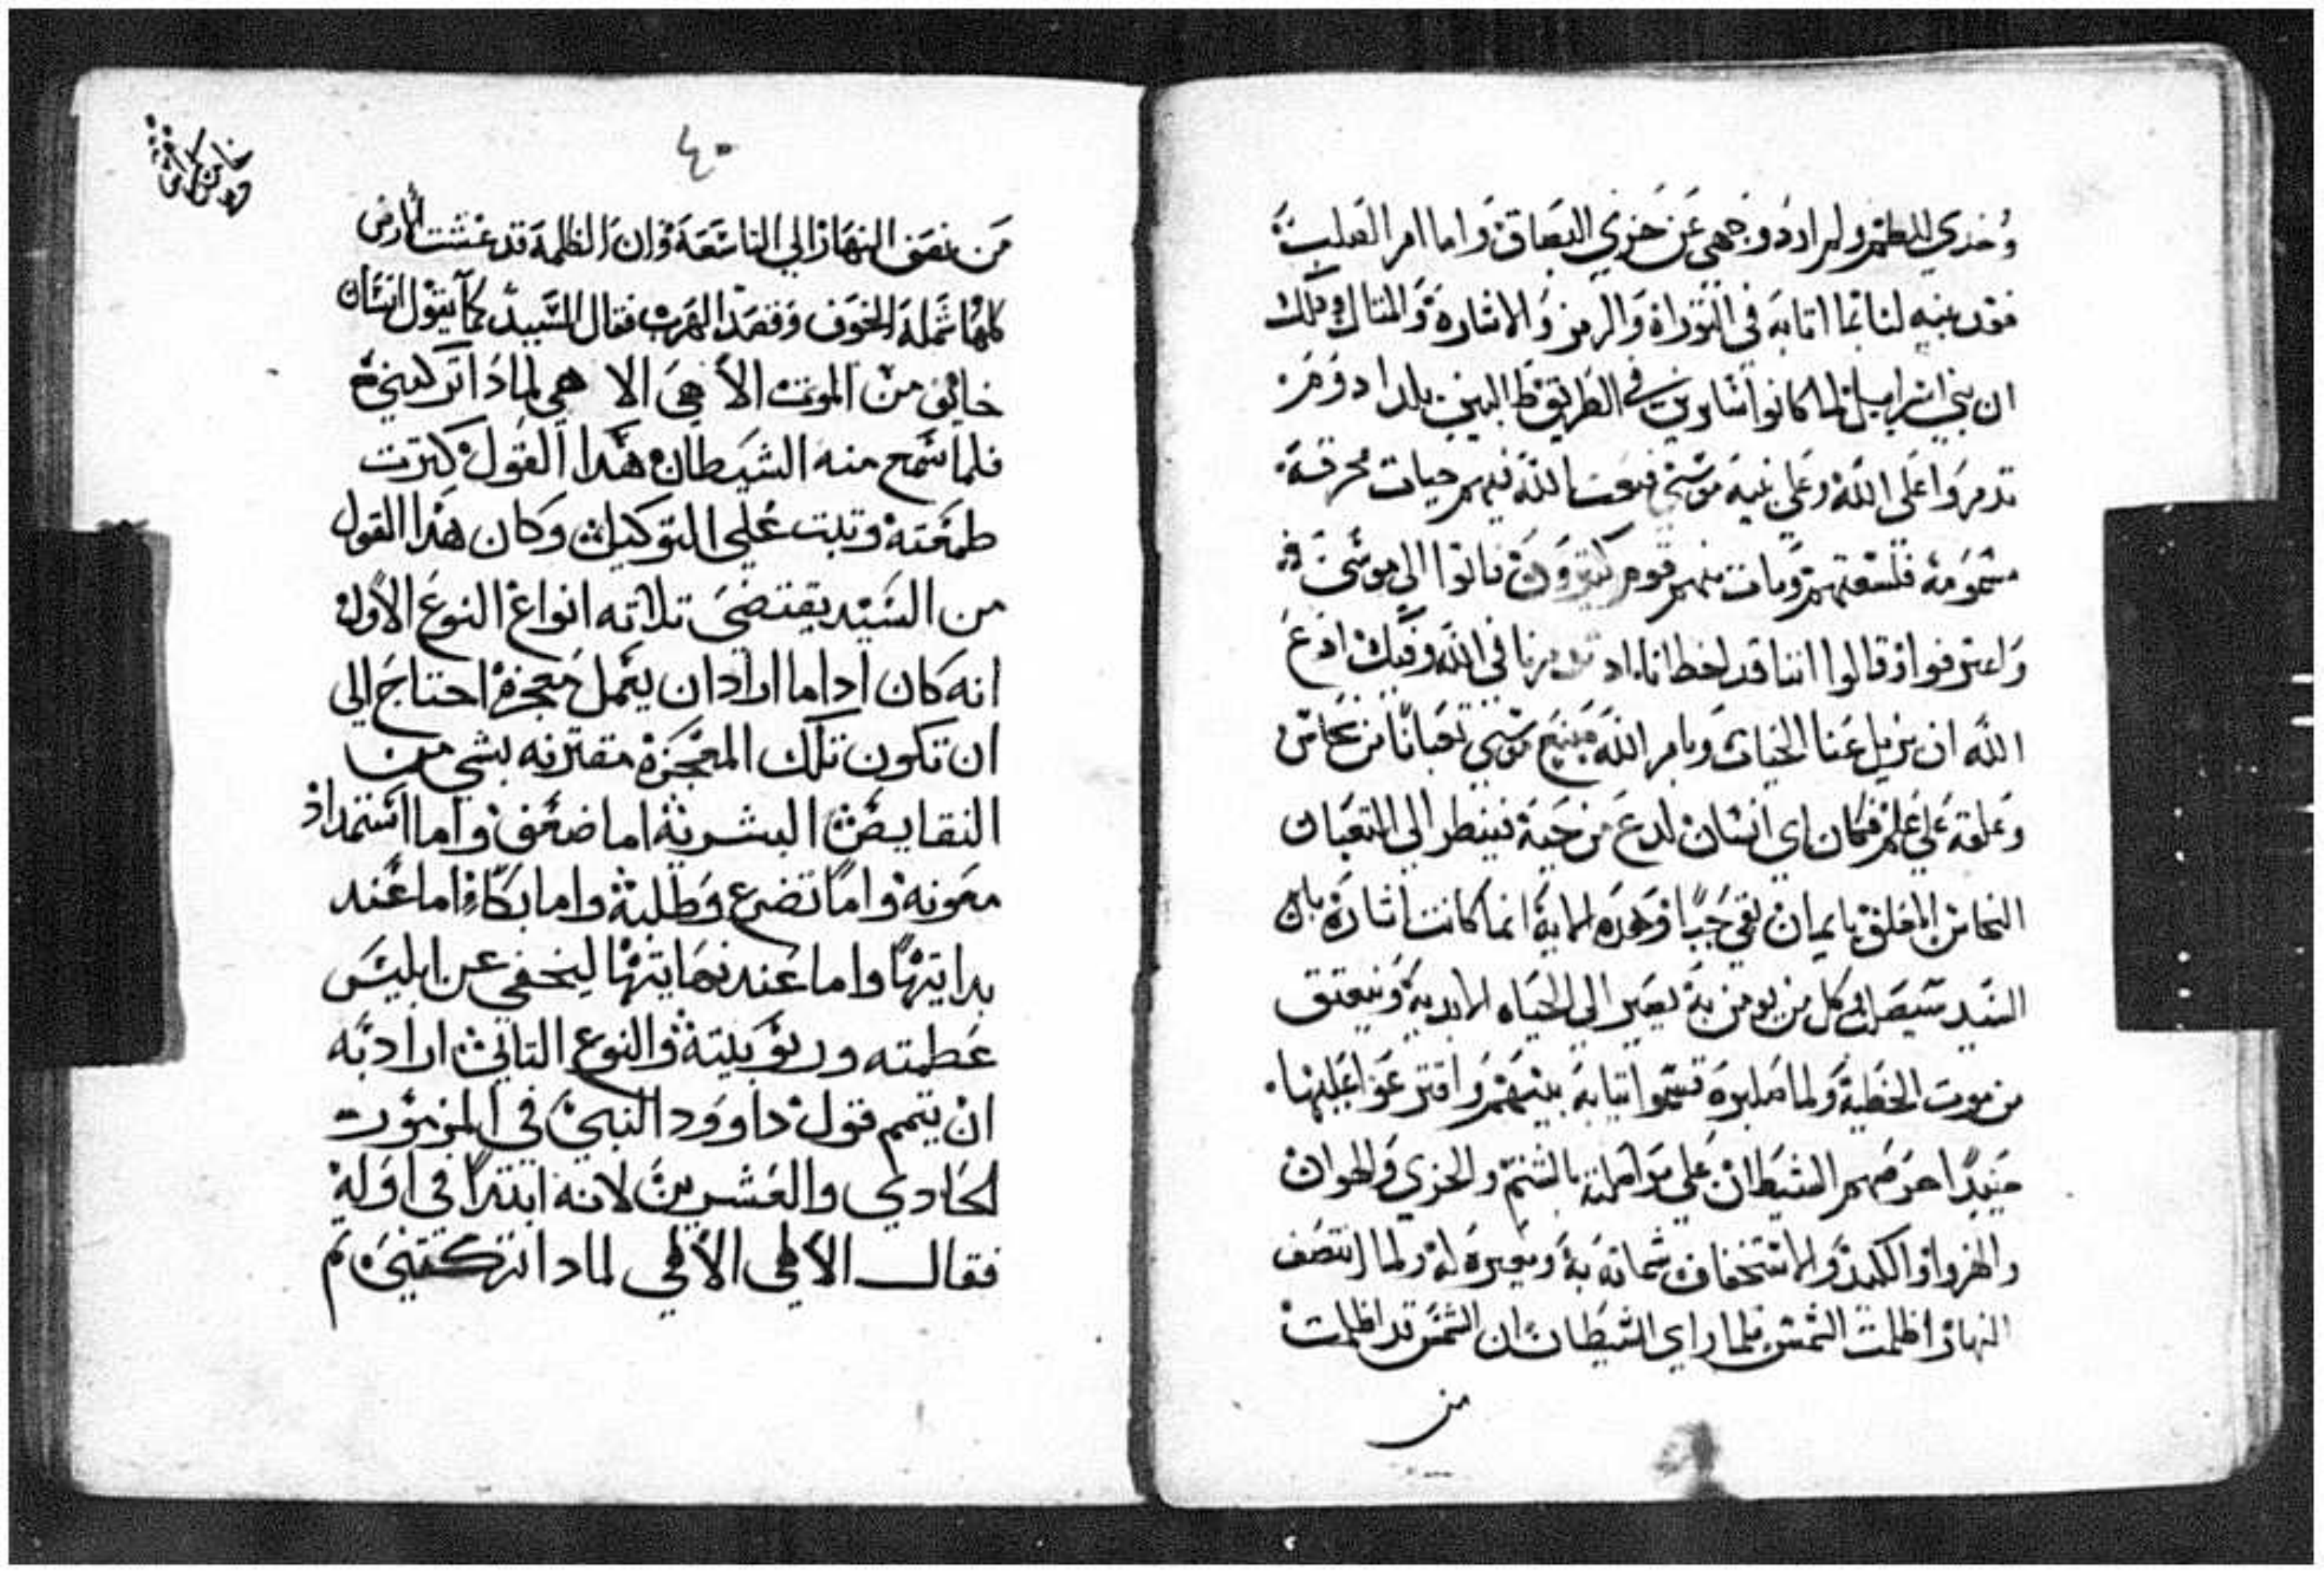 وخدي للطم ولم اردد وجهي عن خزي البصاق واما امر الصليب
فقد بينه لنا بما اتا به في التوراة والرمز والاشارة والمتال ودلك
ان بني اسراييل لما كانوا سايرين في الطريق طالبين بلد ادوم
تدمروا على الله وعلى نبيه موسي فبعت الله فيهم حيات محرقة
مسمومة فلسعتهم ومات منهم قوم كتيرون فاتوا الى موسى
واعترفوا وقالوا اننا قد اخطانا اد تدمرنا في الله وفيك ادع
الله ان يزيل عنا الحيات وبامر الله صنع موسي تعبانا من نحاس
وعلقه على علم فكان اي انسان لدغ من حية فينظر الي التعبان
النحاس المعلق بايمان بقي حيا وهده الاية انما كانت اشارة بان
السيد سيصلب وكل من يومن به يصير الي الحياه الابدية وينعتق
من موت الخطية ولما صلبوه قسموا تيابه بينهم واقترعوا عليها
حينيدا حرضهم الشيطان على مواصلته بالشتم والخزي والهوان
والهزو والكلمد والاستخفاف شماتة به وتعييره له ولما انتصف
النهار اظلمت الشمس فلما راي الشيطان ان الشمس قد اظلمت
من
٤٠
من نصف النهار الي التاسعة وان الظلمة قد غشت الارض
كلها شمله الخوف وقصد الهرب فقال السيد كما يقول انسان
خايف من الموت الاهي الاهي لمادا تركتني
فلما سمع منه الشيطان هدا القول كترت
طمعته وتبت على التوكيل وكان هدا القول
من السيد يقتضي تلاته انواع النوع الاول
انه كان ادا ما اراد ان يعمل معجزة احتاج الي
ان تكون تلك المعجزة مقترنه بشي من
النقايص البشرية اما ضعف واما استمداد
معونة واما تضرع وطلبة واما بكاء اما عند
بدايتها واما عند نهايتها ليخفي عن ابليس
عظمته وربوبيته والنوع التاني اراد به
ان يتمم قول داوود النبي في المزمور
الحادي والعشرين لانه ابتدا في اوله
فقال الاهي الاهي لمادا تركتني تم